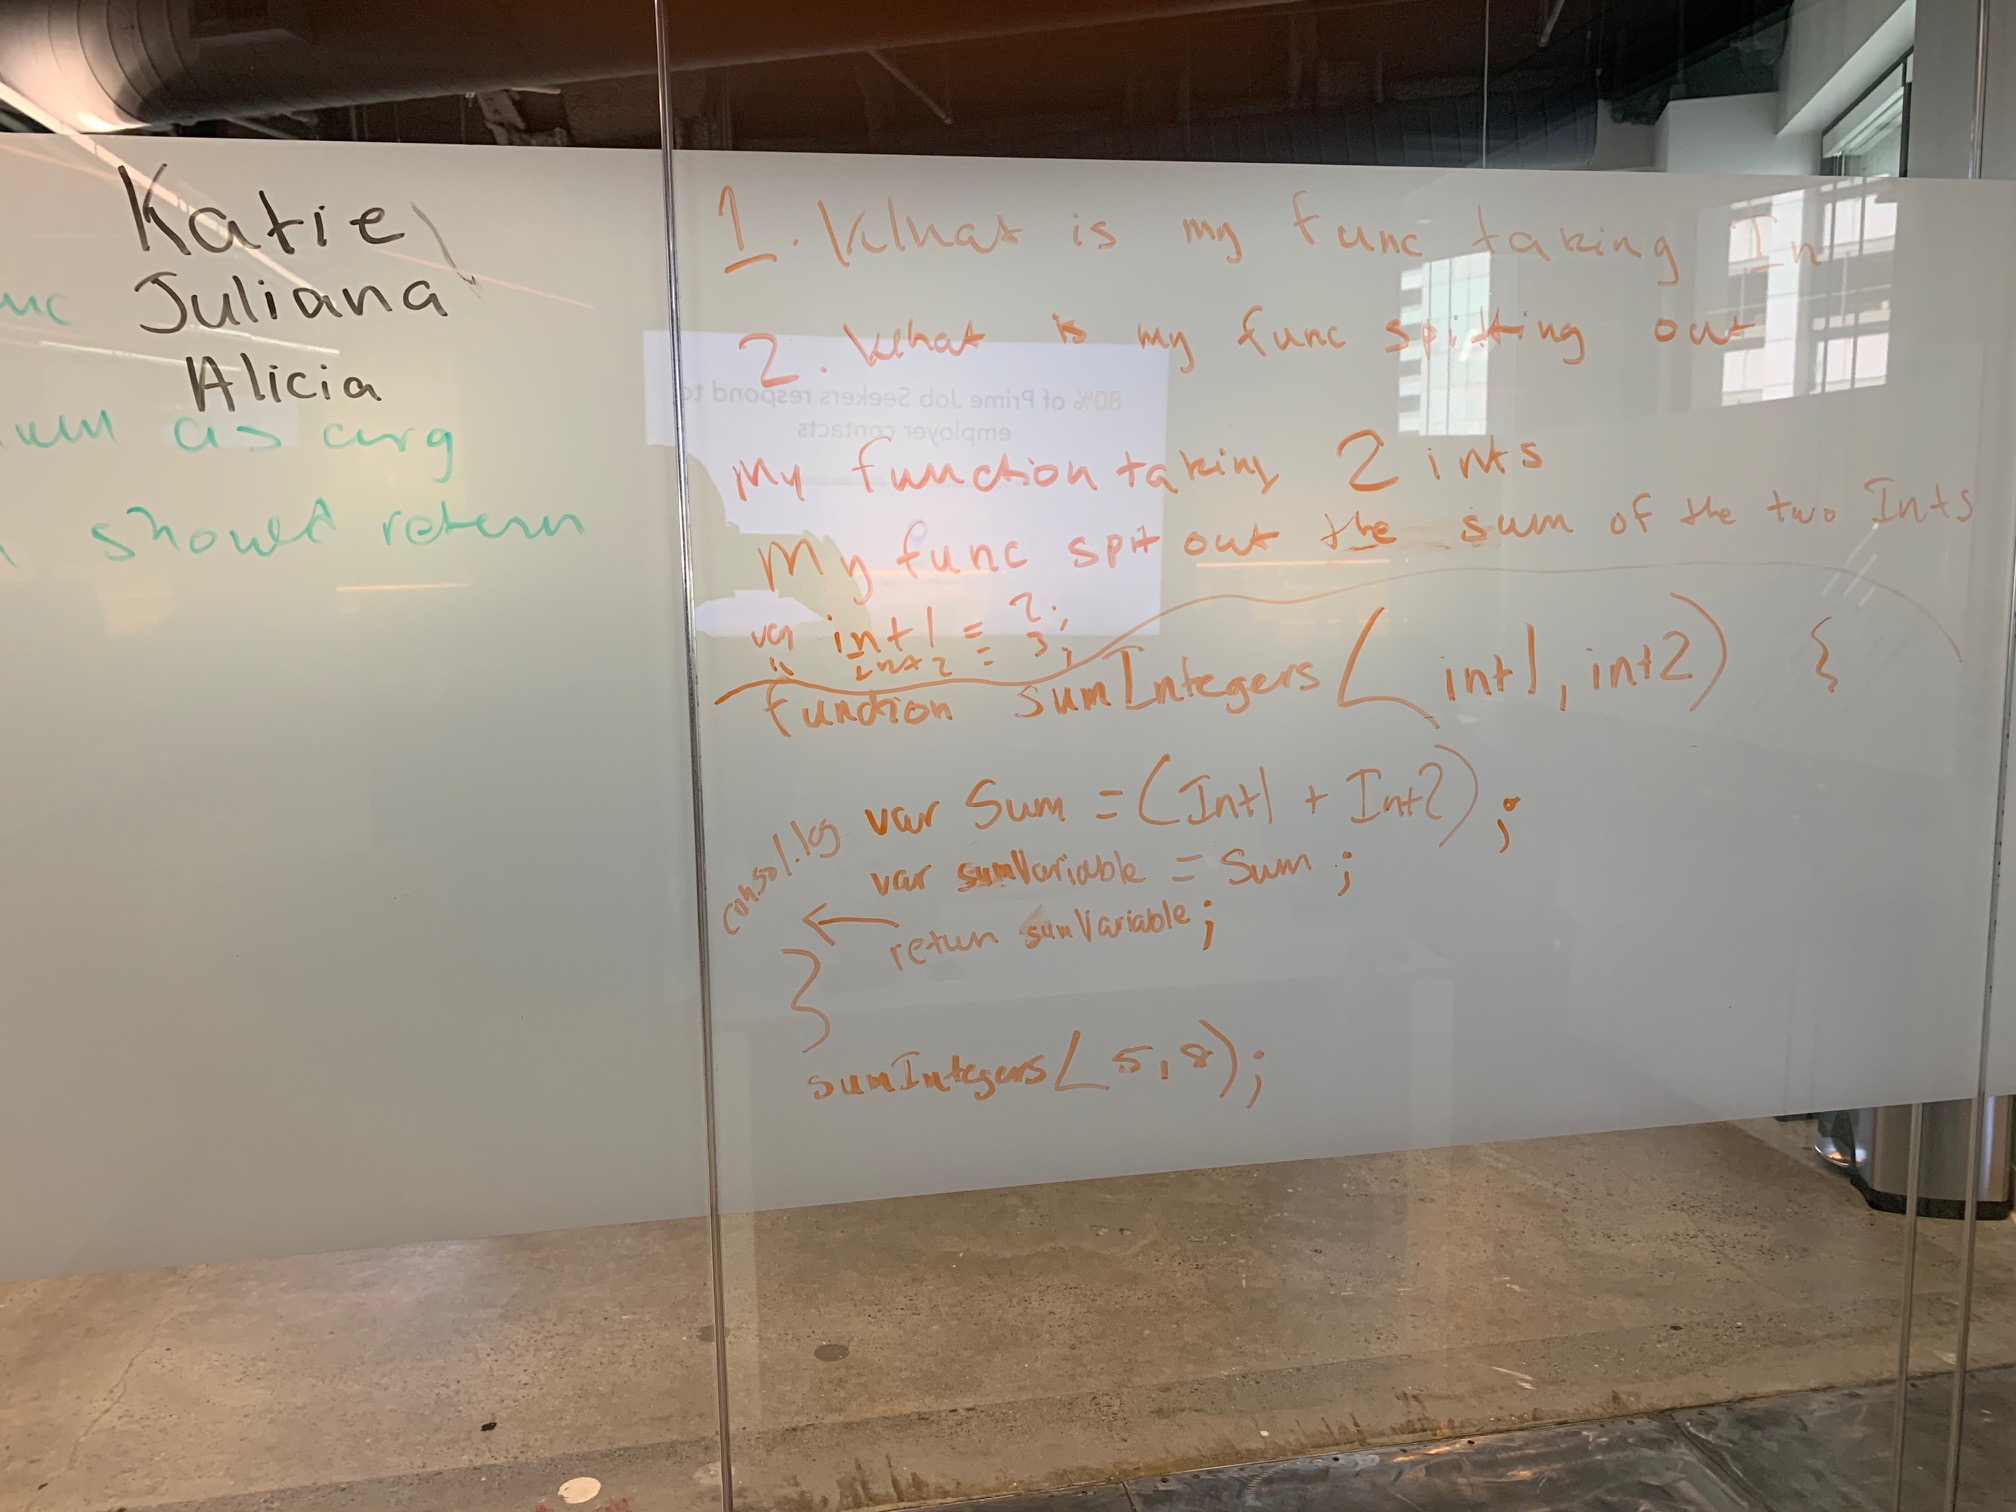 Katie
Juliana
Alicia
as arg
should return
1. What is my func taking In
2. What is my func spitting out
80% of Prime Job Seekers respond to
employer contacts
My function taking 2 ints
My func spit out the sum of the two Ints
var int1 = 2;
" int2 = 3;
function sumIntegers( int1, int2) {
consol.log
var Sum = (Int1 + Int2);
var sumVariable = Sum;
return sumVariable;
}
sumIntegers(5,8);